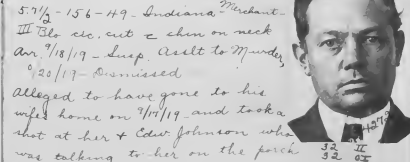 5.7½ - 156 - 49 - Indiana - Merchant -
III Blo cic. cut c shin on neck
Arr. 9/18/19 - Susp. Asslt to Murder,
9/20/19 - Dismissed
Alleged to have gone to his
wifes home on 9/17/19 - and took a
shot at her & Edw. Johnson who
was talking to her on the porch
32 II
32 OI